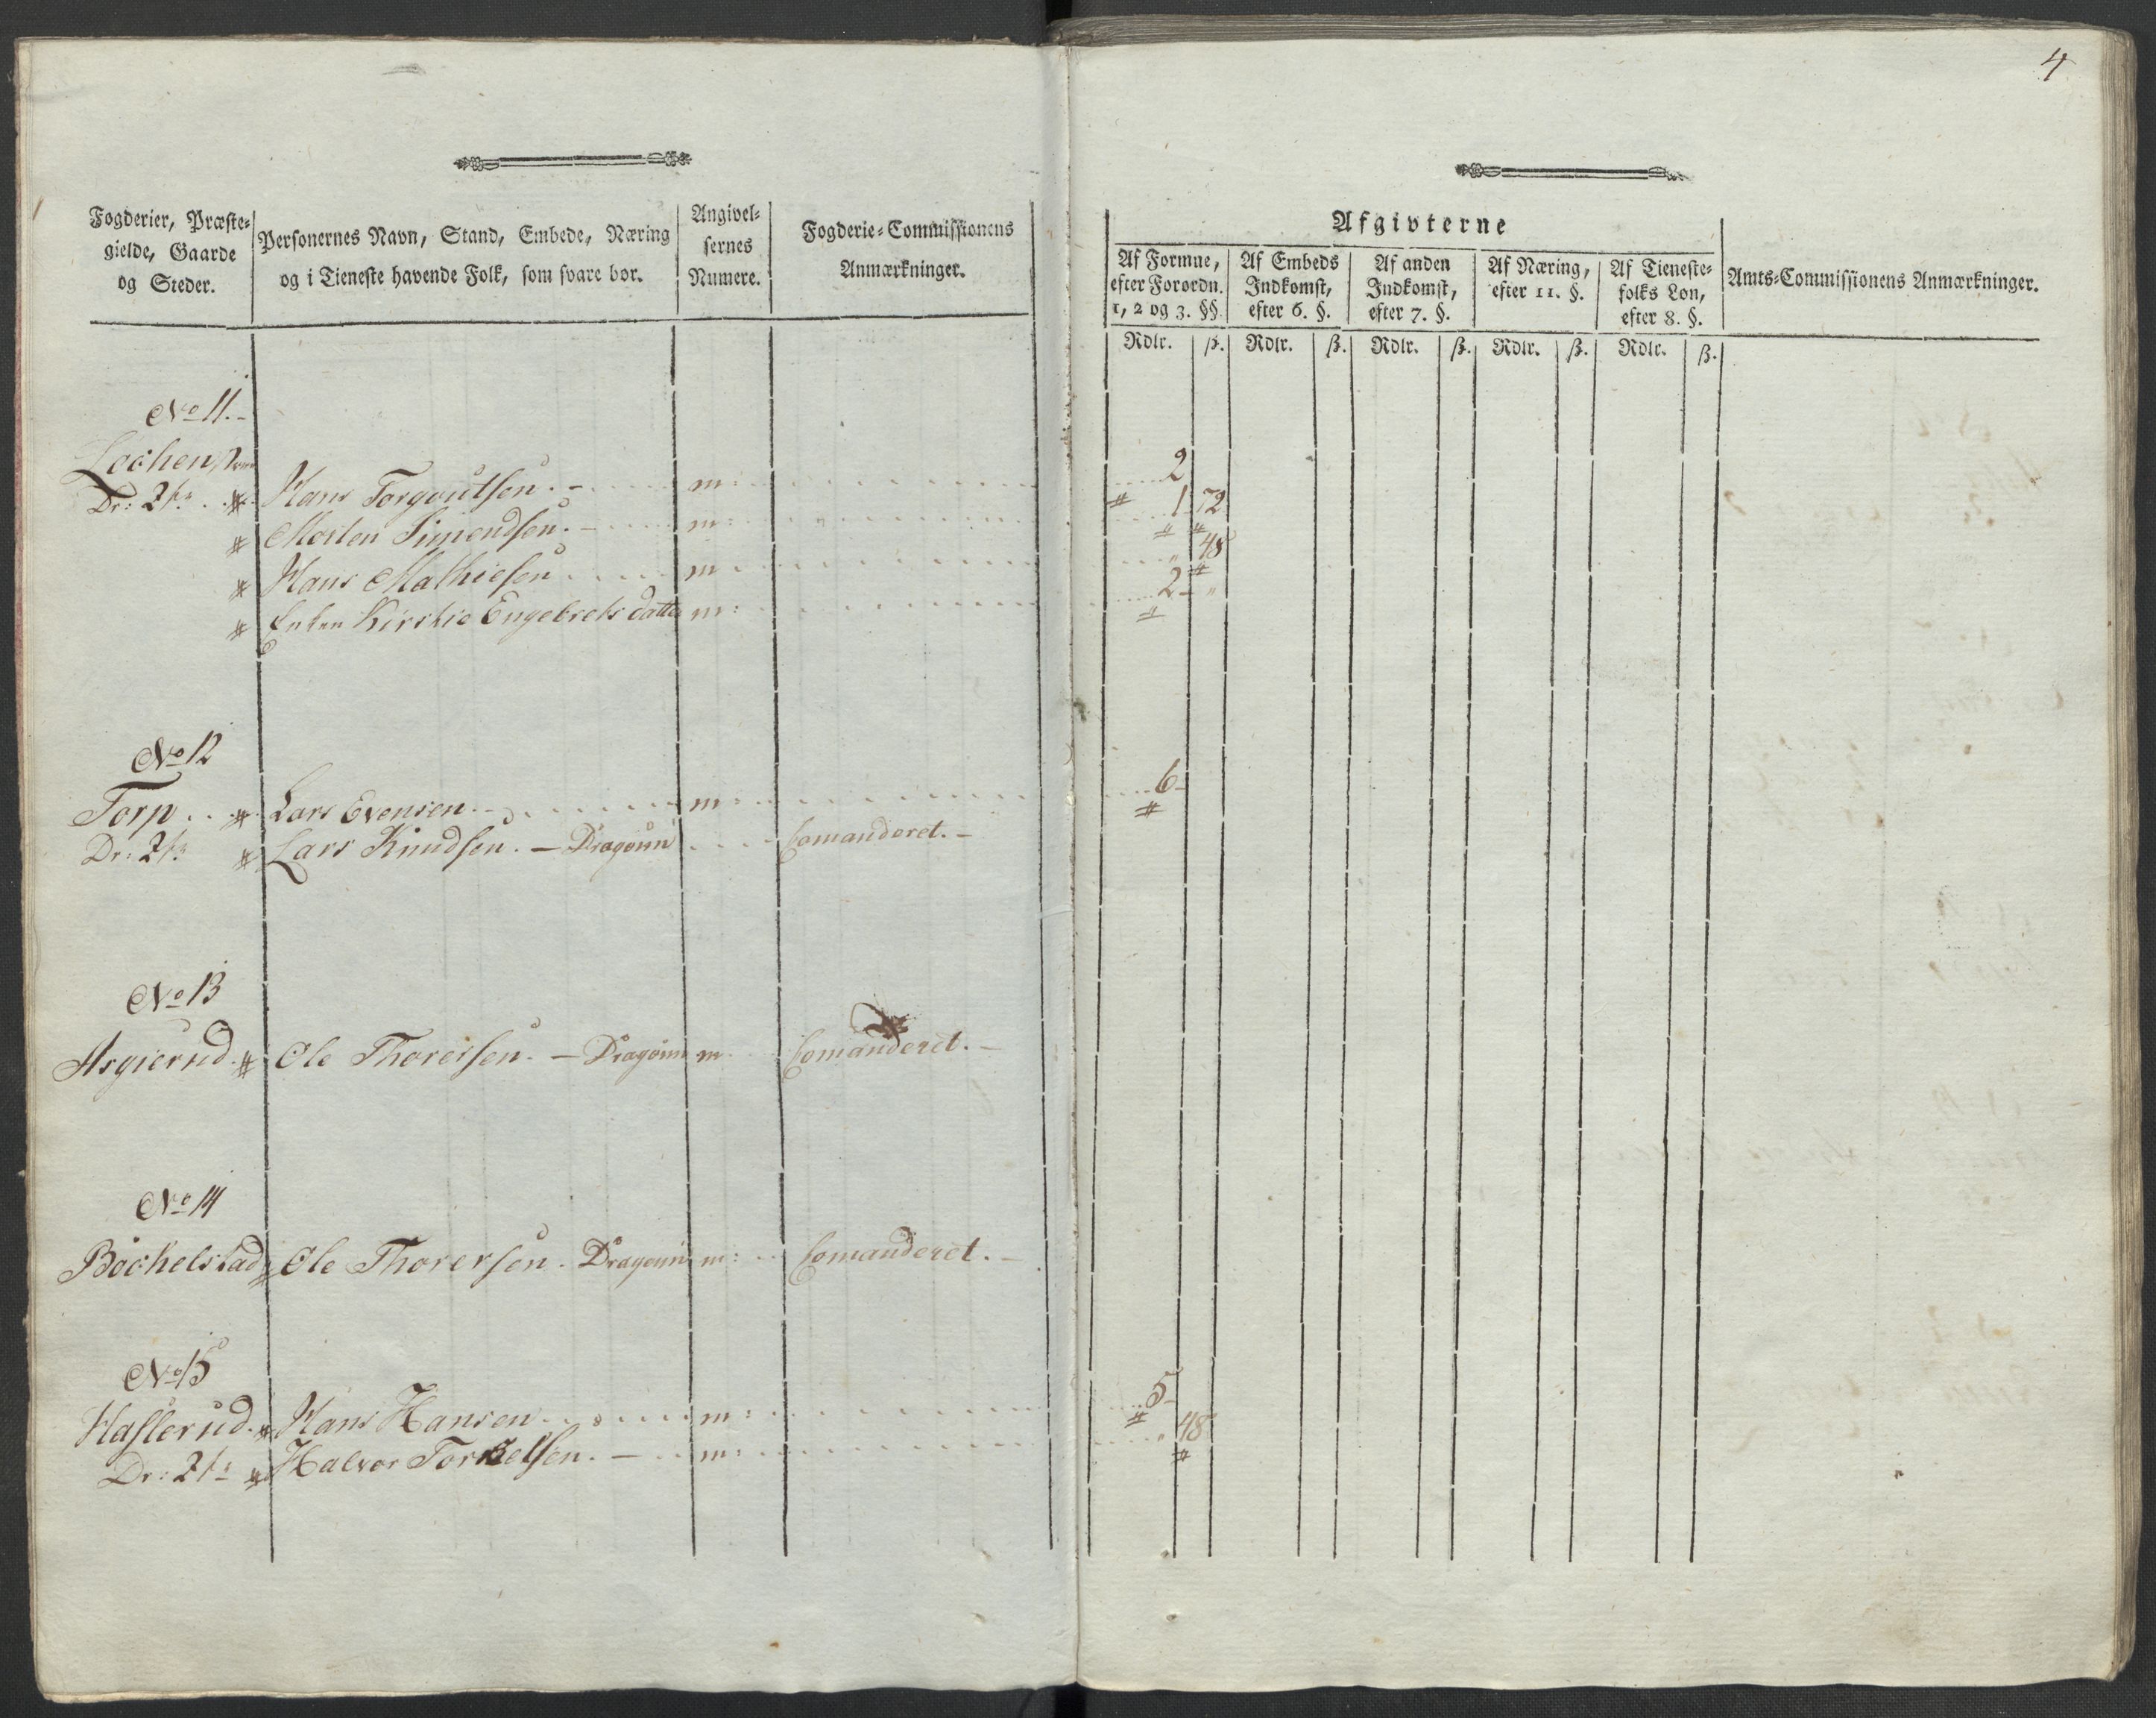 4
Fogderier, Præste-
gielde, Gaarde
og Steder.
Personernes Navn, Stand, Embede, Næring
og i Tieneste havende Folk, som svare bør.
Angivel-
sernes
Numere.
Fogderie-Commissionens
Anmærkninger.
Afgivterne
Af Formue,
efter Forordn.
1, 2 og 3. §§.
Af Embeds
Indkomst,
efter 6. §.
Af anden
Indkomst,
efter 7. §.
Af Næring,
efter 11. §.
Af Tieneste-
folks Løn,
efter 8. §.
Amts-Commissionens Anmærkninger.
Rdlr. ß. Rdlr. ß. Rdlr. ß. Rdlr. ß. Rdlr. ß.
No 11.
Lochen
Dr: 2/s Hans Torgoutsen. m: 2
Morten Simendsen. m: 1 72
Hans Mathiesen m 48
Enken Kirstie Engebrets datter m: 2 "
No 12
Torp Lars Evensen m: 6
Dr: 2/s Lars Knudsen. - Dragoun Comanderet.
No 13
Asgierud Ole Thoresen. - Dragoun m Comanderet.
No 14
Böchelstad Ole Thorersen. Dragoun m: Comanderet.
No 15
Haslerud. Hans Hansen m: 5
Dr: 2/s Halvor Torkelsen. m: 48